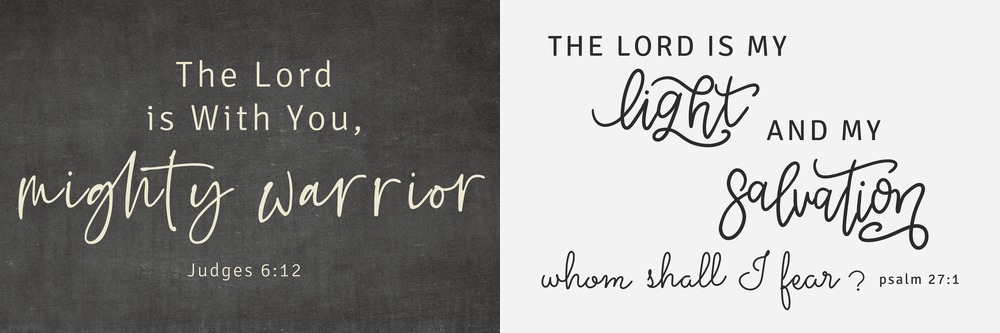 The Lord
is With You,
mighty warrior
Judges 6:12
THE LORD IS MY
light
AND MY
salvation
whom shall I fear? psalm 27:1